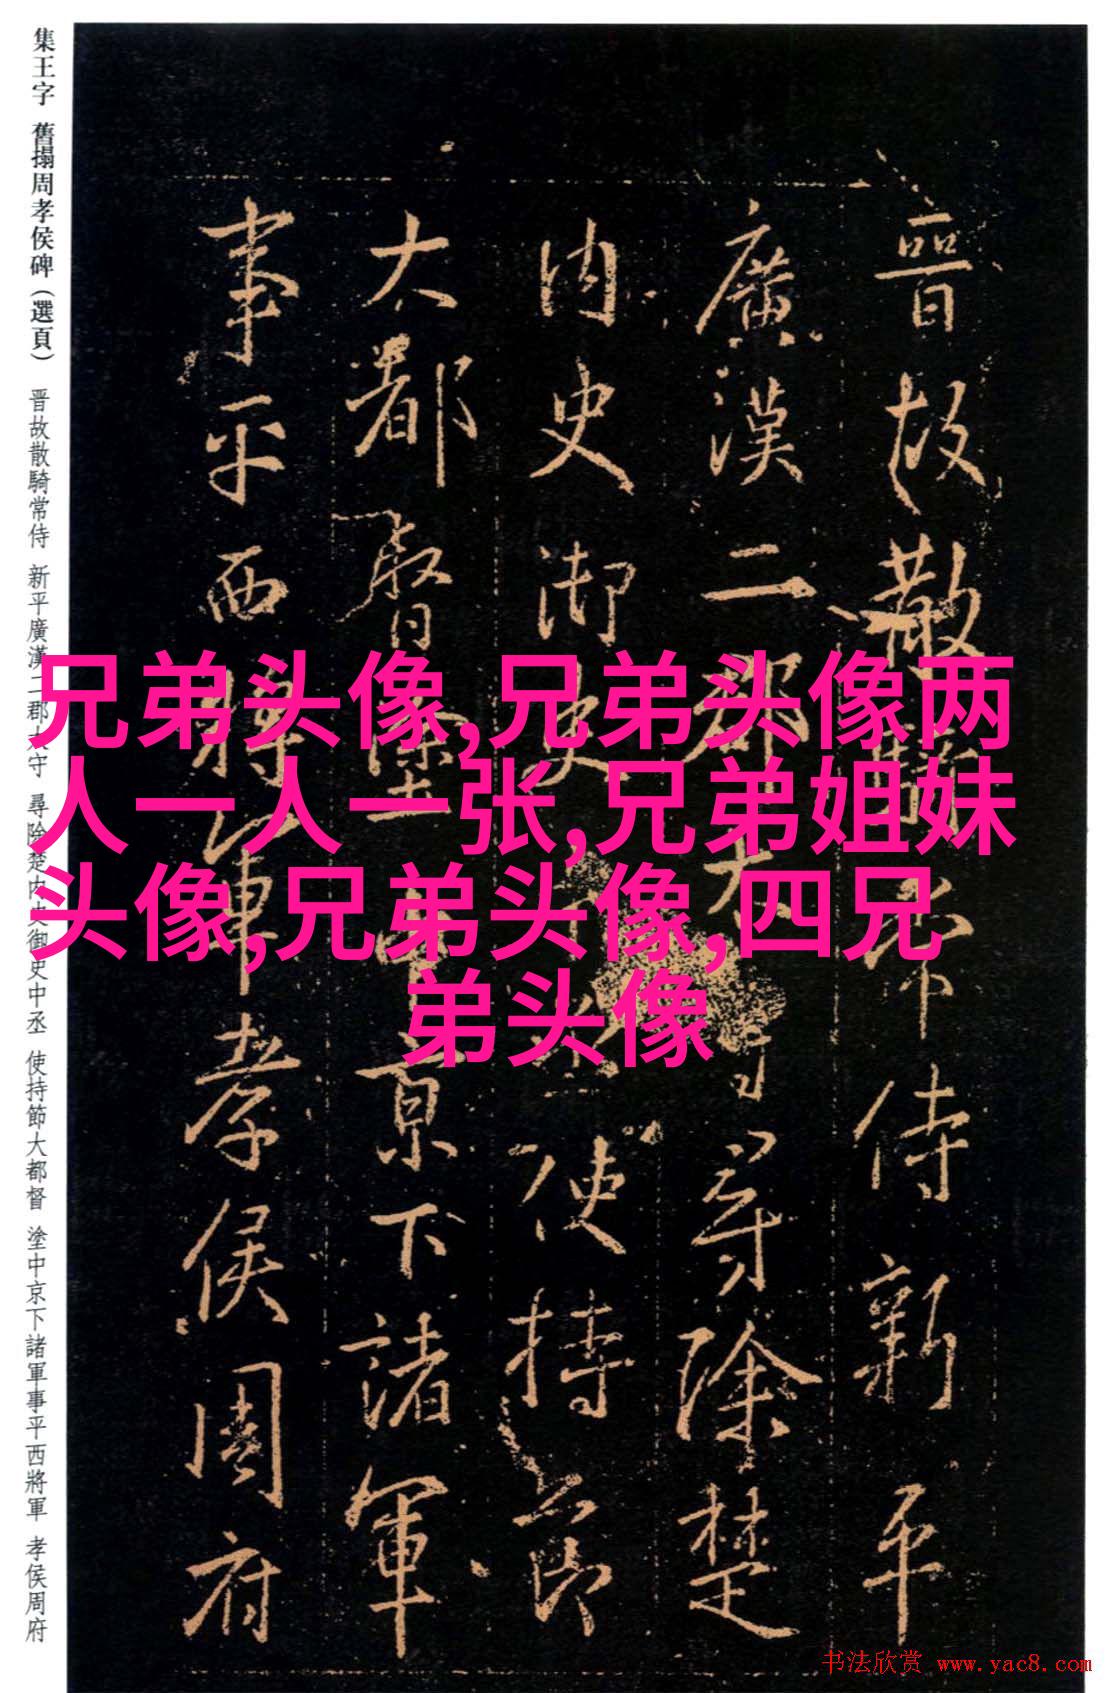 晉故散騎常侍新平
廣漢二郡太守尋除楚
内史御史中丞使持節
大都督塗中京下諸軍
事平西將軍孝侯周府
集王字 舊搨周孝侯碑（選頁） 晋故散騎常侍 新平廣漢二郡太守 尋除楚内史御史中丞 使持節大都督 塗中京下諸軍事平西將軍 孝侯周府
兄弟头像,兄弟头像两
人一人一张,兄弟姐妹
头像,兄弟头像,四兄
弟头像
书法欣赏 www.yac8.com